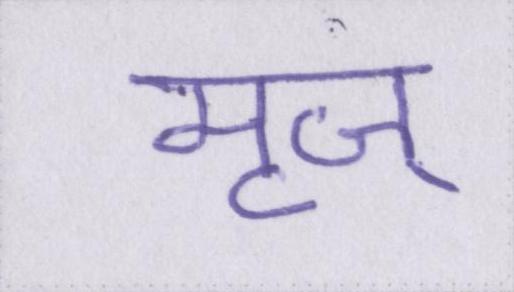 मृज्